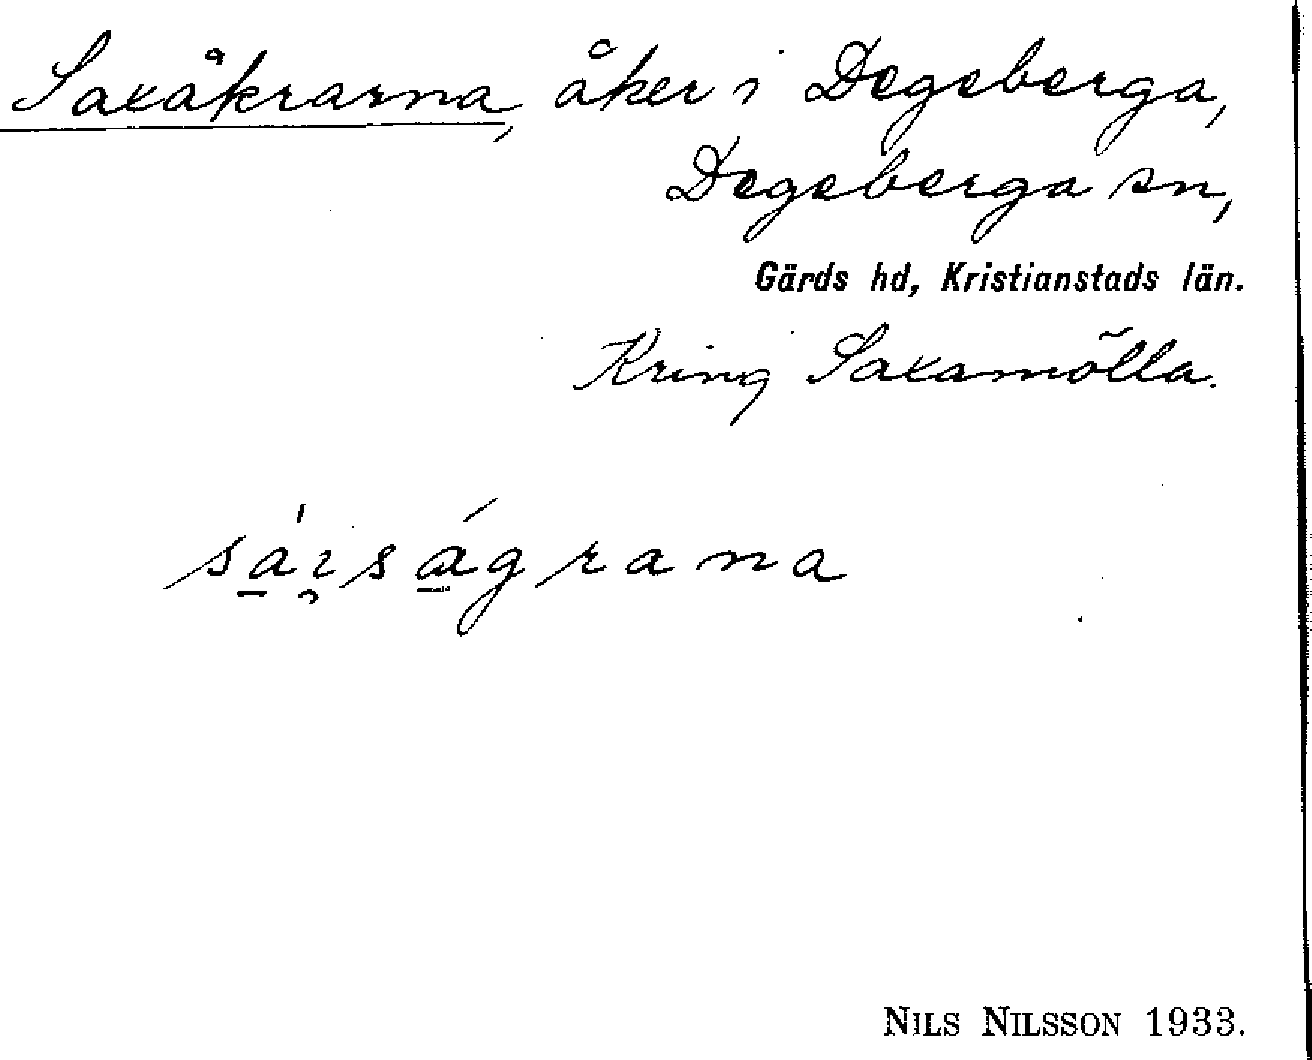 Saxåkrarna, åker i Degeberga,
Degeberga sn,
Gärds hd, Kristianstads län.
Kring Saxamölla.
NILS NILSSON 1933.